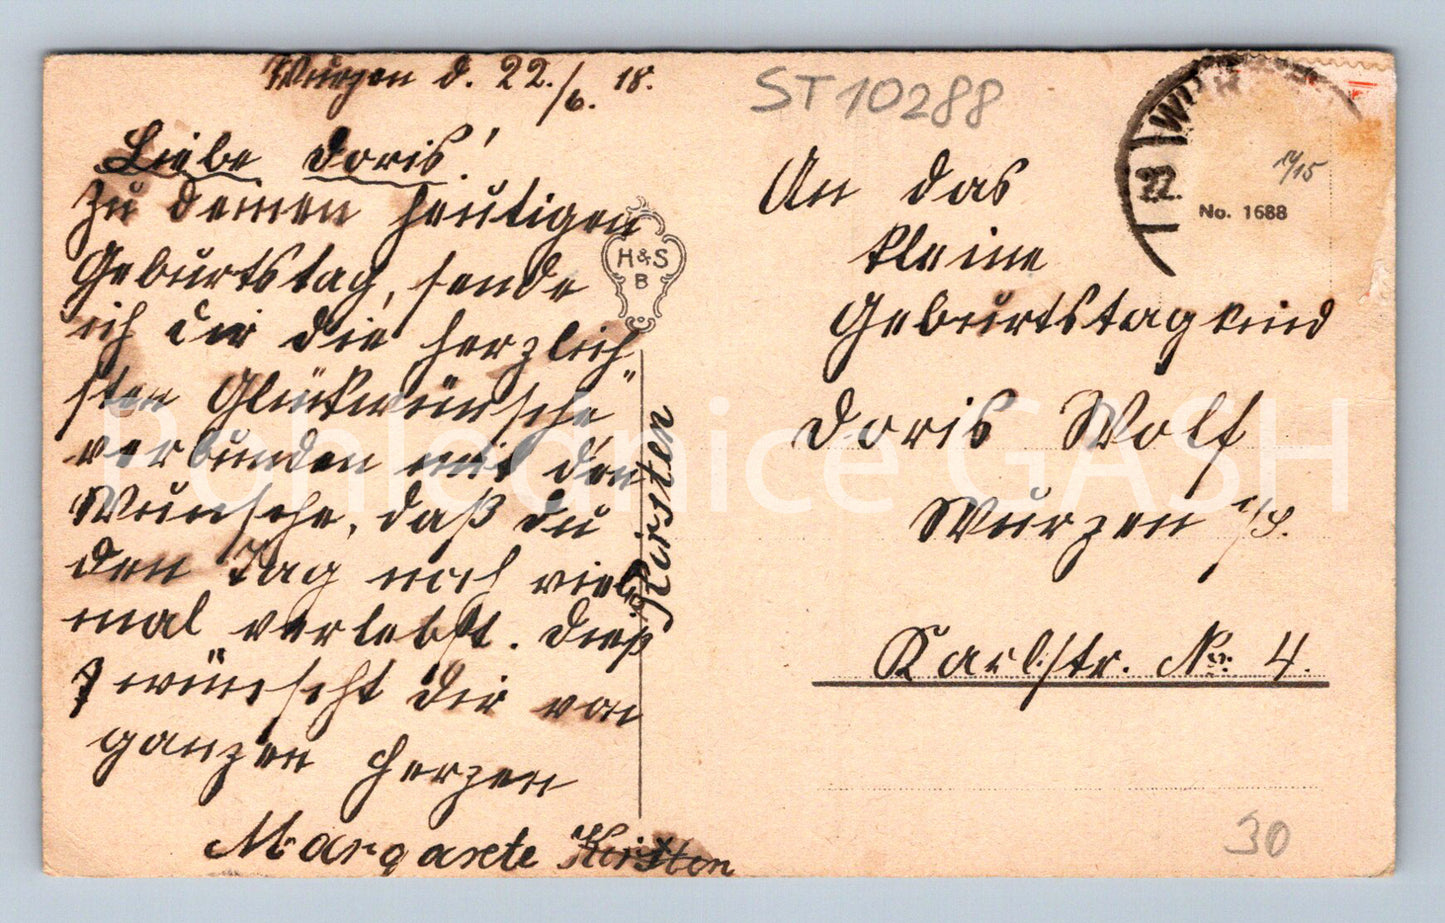 Wurzen d. 22./6. 18.
Liebe Doris!
Zu deinen heutigen
Geburtstag, sende
ich Dir die herzlich-
sten Glückwünsche
verbunden mit den
Wunsche, daß du
den Tag noch viel
mal verlebst. Dieß
wünscht Dir von
ganzen Herzen
Margarete Kirsten
Kirsten
H&S
B
ST 10288
An das
kleine
Geburtstagkind
Doris Wolf
Wurzen i/S.
Karlstr. No 4.
22.
No. 1688
30
Pohlednice GASH